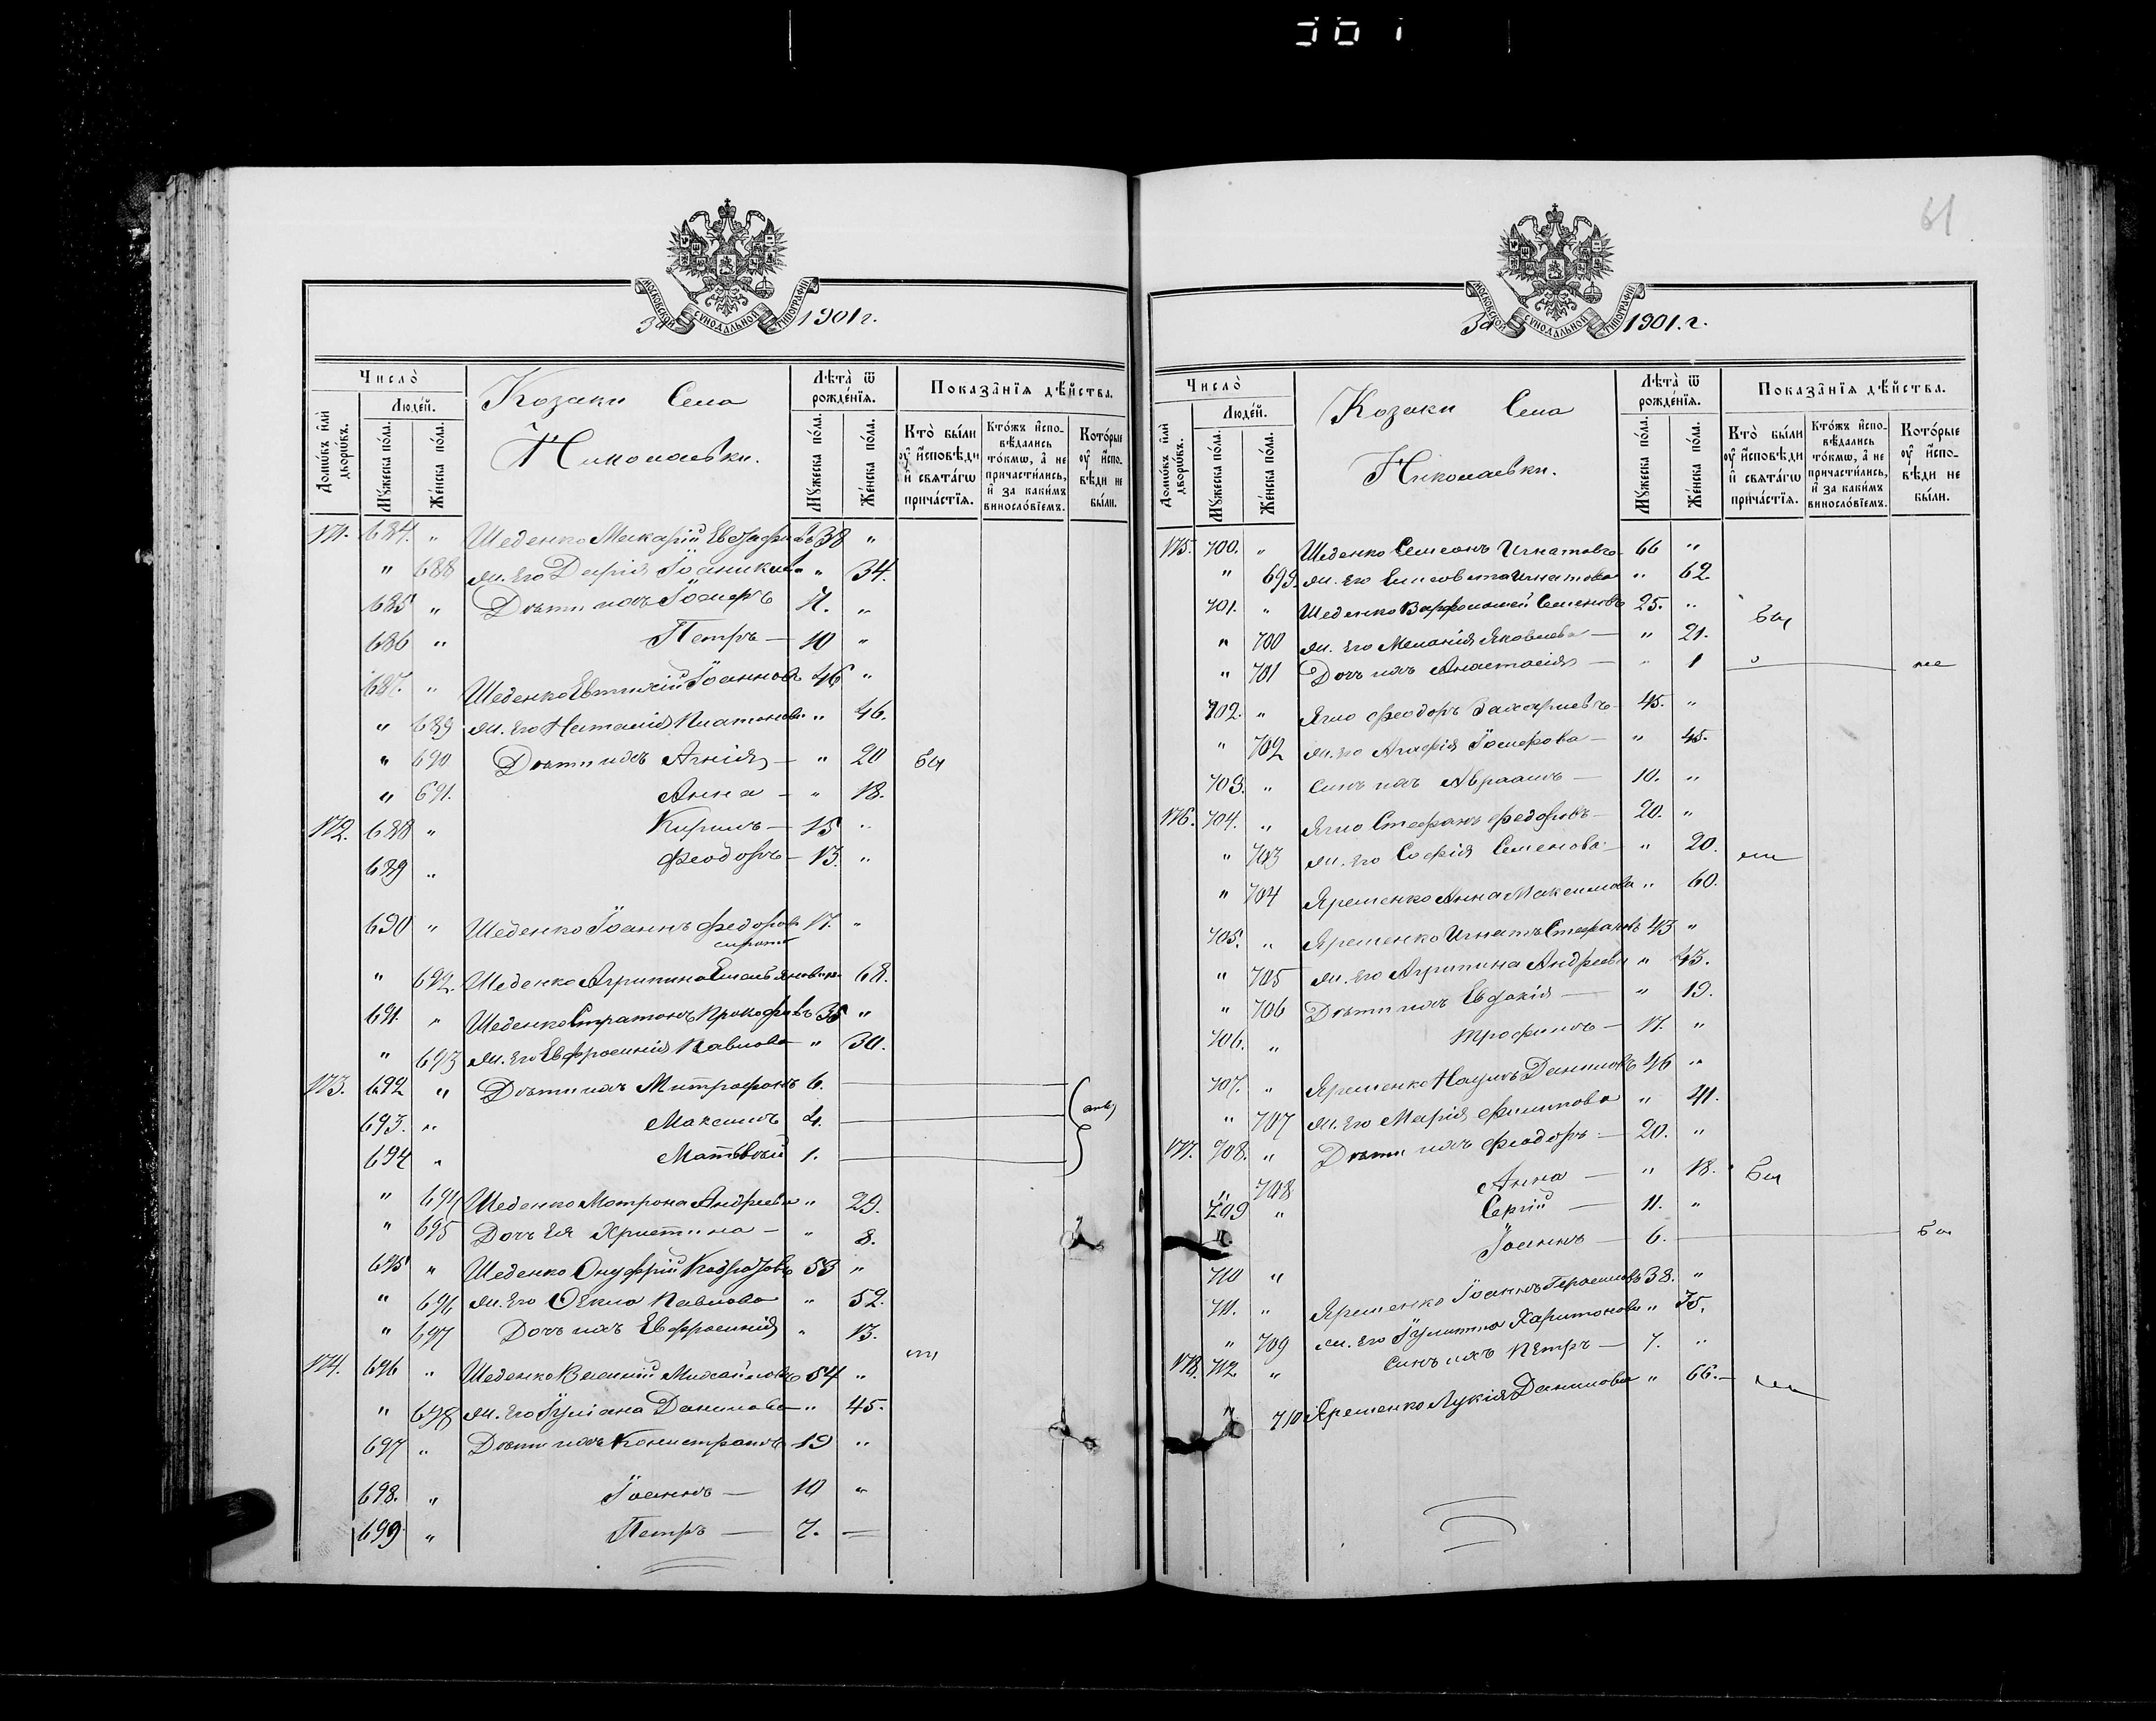 61
МОСКОВСКОЙ СѴНОДАЛЬНОЙ ТИПОГРАФІИ
За 1901 г.
Число̀
Людéй.
Домѡ́въ и҆лѝ дворѡ́въ.
Мꙋ́жеска по́ла.
Же́нска по́ла.
Козаки Села
Николаевки.
Лѣта̀ ѿ рожде́нїѧ.
Мꙋ́жеска по́ла.
Же́нска по́ла.
Показа̑нїѧ дѣ́йства.
Кто̀ бы́ли оу҆ и҆сповѣ́ди и҆ свѧта́гѡ прича́стїѧ.
Кто́жъ и҆спо- вѣ́дались то́кмѡ, а҆ не причасти́лись, и҆ за каки́мъ винословїемъ.
Кото́рые оу҆ и҆спо- вѣ́ди не бы́ли.
171. 684. " Шеденко Макарій Евграфовъ 38 "
" 688 ж. его Дарія Іоаникова " 34.
685 " Дѣти ихъ Іосифъ 11. "
686 " Петръ — 10 "
687. " Шеденко Евтихій Іоанновъ 46 "
" 689 ж. его Наталія Платонова " 46.
" 690 Дѣти ихъ Агнія — " 20 Бы
" 691. Анна — " 18.
172. 688 " Кирилъ — 15 "
689 " Феодоръ — 13. "
690 " Шеденко Іоаннъ Федоровъ 17. "
сирота
" 692. Шеденко Агрипина Емельянова " 68.
691. " Шеденко Стратонъ Прокофіевъ 35 "
" 693 ж. его Евфросинія Павлова " 30.
173. 692 " Дѣти ихъ Митрофанъ 6. —
693. " Максимъ 4. —
694 " Матвѣй 1. —
" 694 Шеденко Мотрона Андреева " 29.
" 695 Дочь ея Христина — " 8.
695 " Шеденко Онуфрій Кодратовъ 53 "
" 696 ж. его Ѳекла Павлова " 52.
" 697 Дочь ихъ Евфросинія " 13.
174. 696 " Шеденко Василій Михайловъ 54 "
" 698 ж. его Іуліана Данилова — " 45.
697 " Дѣти ихъ Калистратъ 19 "
698. " Іоаннъ — 10 "
699 " Петръ — 7. —
МОСКОВСКОЙ СѴНОДАЛЬНОЙ ТИПОГРАФІИ
За 1901. г.
Число̀
Людéй.
Домѡ́въ и҆лѝ дворѡ́въ.
Мꙋ́жеска по́ла.
Же́нска по́ла.
Козаки Села
Николаевки.
Лѣта̀ ѿ рожде́нїѧ.
Мꙋ́жеска по́ла.
Же́нска по́ла.
Показа̑нїѧ дѣ́йства.
Кто̀ бы́ли оу҆ и҆сповѣ́ди и҆ свѧта́гѡ прича́стїѧ.
Кто́жъ и҆спо- вѣ́дались то́кмѡ, а҆ не причасти́лись, и҆ за каки́мъ винословїемъ.
Кото́рые оу҆ и҆спо- вѣ́ди не бы́ли.
175. 700. " Шеденко Симеонъ Игнатовъ 66 "
" 699. ж. его Елисавета Игнатова " 62
701. " Шеденко Варфоломей Семеновъ 25. " Бы
" 700 ж. его Меланія Яковлева — " 21.
" 701 Дочь ихъ Анастасія — " 1 " — не
702. " Ягло Феодоръ Захаріевъ — 45. "
" 702 ж. его Агафія Іосифова — " 45.
703. " Сынъ ихъ Авраамъ — 10. "
176. 704. " Ягло Стефанъ Федоровъ — 20. "
" 703 ж. его Софія Семенова — " 20. ли
" 704 Яременко Анна Максимова " 60.
705. " Яременко Игнатъ Стефановъ 43 "
" 705 ж. его Агрипина Андреева " 43.
" 706 Дѣти ихъ Евдокія — " 19.
706. " Трофимъ — 17. "
707. " Яременко Наумъ Даниловъ 46 "
" 707 ж. его Марія Филипова " 41.
177. 708. " Дѣти ихъ Феодоръ — 20. "
" 708 Анна — " 18. Бы
709 " Сергій — 11. "
710 " Іоаннъ — 6. —
711. " Яременко Іоаннъ Герасимовъ 38. "
" 709 ж. его Іулитта Харитонова " 35.
178. 712 " Сынъ ихъ Петръ — 7. "
" 710 Яременко Лукія Данилова " 66. — ли